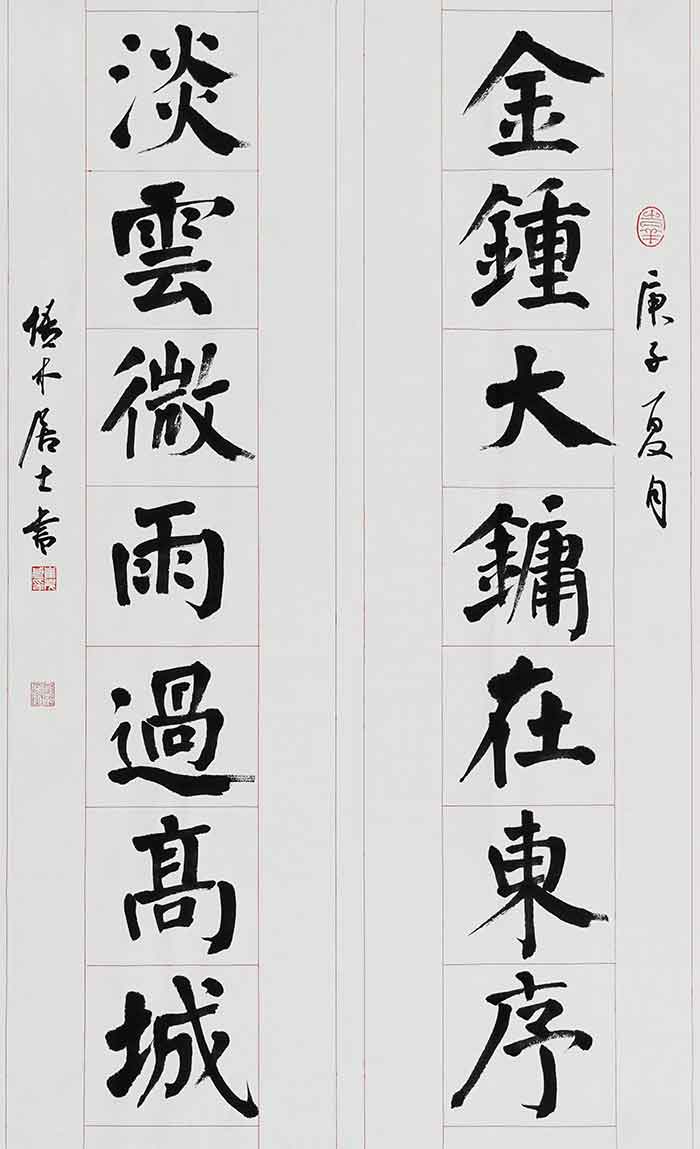 庚子夏月
金鍾大鏞在東序
淡雲微雨過高城
木居士书